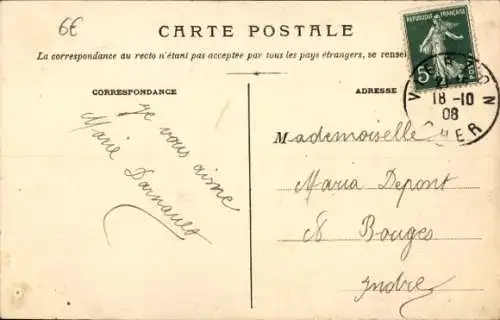 6€
CARTE POSTALE
La correspondance au recto n'étant pas acceptée par tous les pays étrangers, se rensei
REPUBLIQUE FRANÇAISE
5
18-10
08
CORRESPONDANCE
ADRESSE
Je vous aime
Marie Darnault
Mademoiselle
Maria Depont
à Bouges
Indre